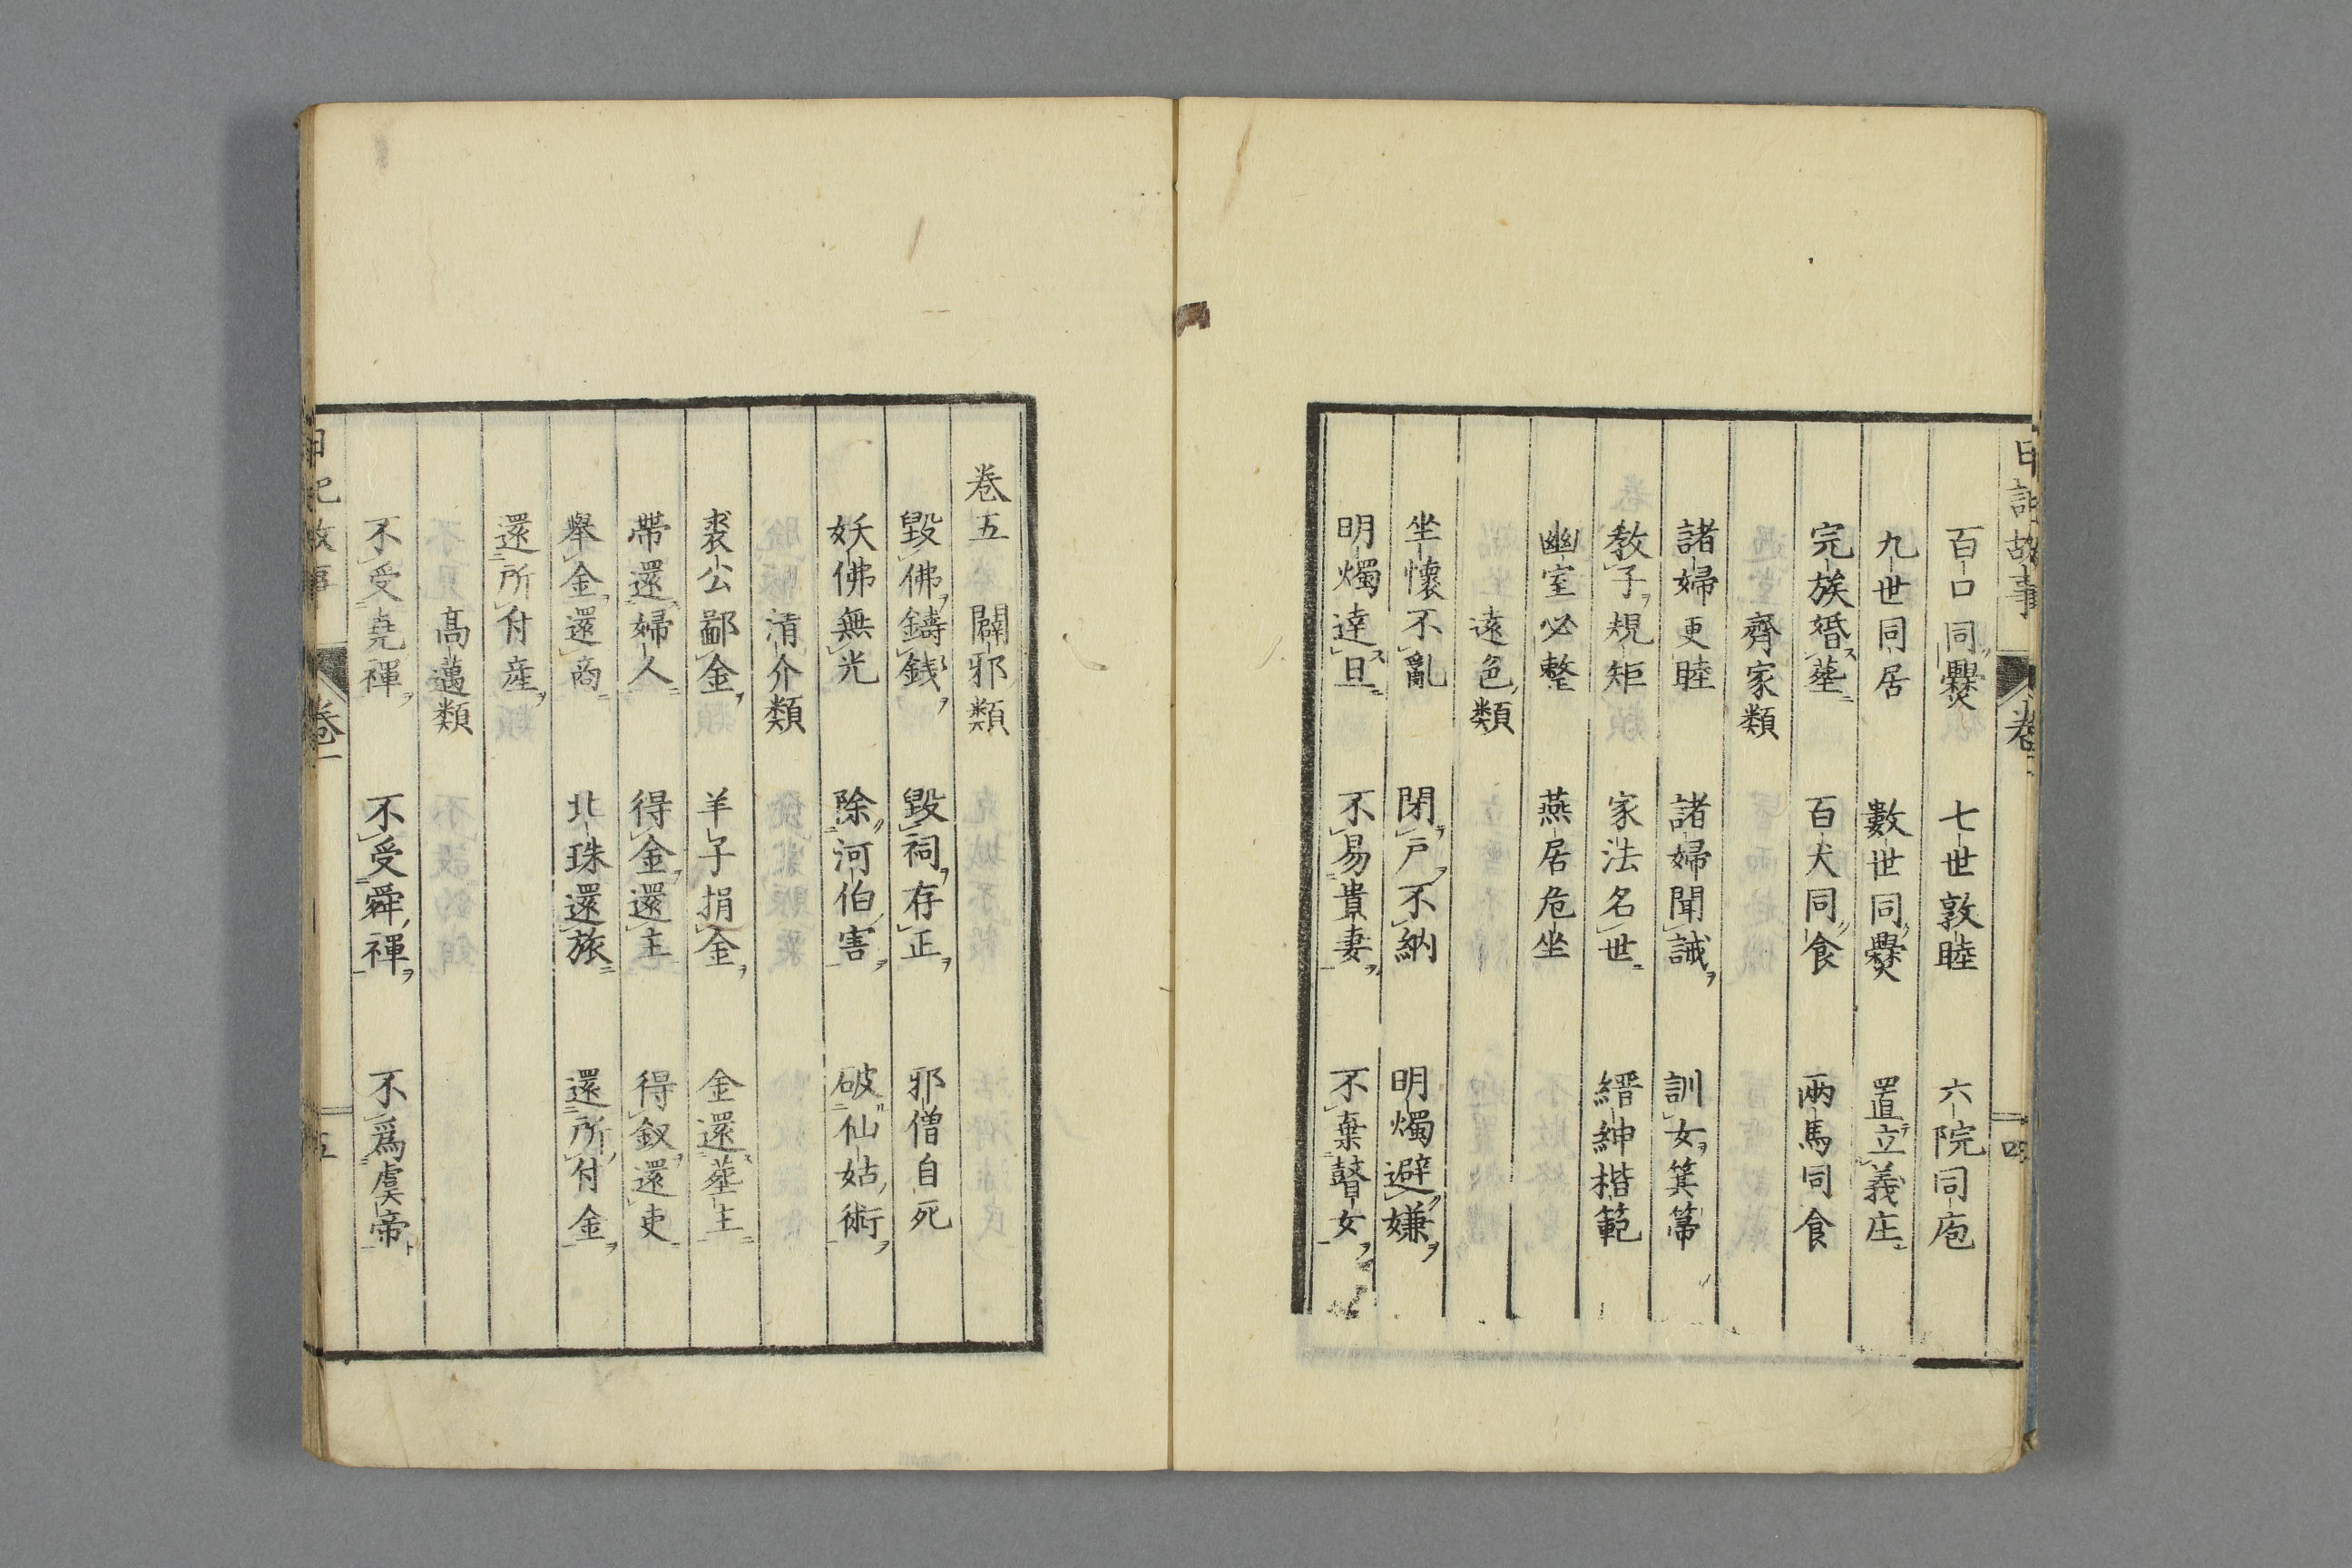 日記故事 卷一 四
百口同爨 七世敦睦 六院同庖
九世同居 數世同爨 置立義庄
完族婚塟 百犬同食 兩馬同食
齊家類
諸婦更睦 諸婦聞誡 訓女箕箒
教子規矩 家法名世 縉紳楷範
幽室必整 燕居危坐
遠色類
坐懷不亂 閉戸不納 明燭避嫌
明燭達旦 不易貴妻 不棄瞽女
卷五 闢邪類
毀佛鑄錢 毀祠存正 邪僧自死
妖佛無光 除河伯害 破仙姑術
清介類
裘公鄙金 羊子捐金 金還塟主
帶還婦人 得金還主 得釵還吏
舉金還商 北珠還旅 還所付金
還所付産
高邁類
不受堯禪 不受舜禪 不爲虞帝
日記故事 卷一 五